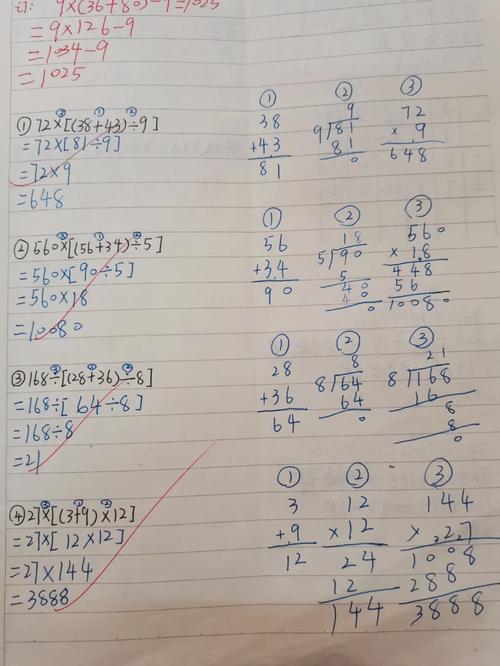 订: 9×(36+80)-9=1025
=9×126-9
=1034-9
=1025
① 72×[(38+43)÷9]
=72×[81÷9]
=72×9
=648
①
38
+43
81
②
9
9)81
81
0
③
72
×9
648
② 560×[(56+34)÷5]
=560×[90÷5]
=560×18
=10080
①
56
+34
90
②
18
5)90
5
40
40
0
③
560
×18
448
56
10080
③ 168÷[(28+36)÷8]
=168÷[64÷8]
=168÷8
=21
①
28
+36
64
②
8
8)64
64
0
③
21
8)168
16
8
8
0
④ 27×[(3+9)×12]
=27×[12×12]
=27×144
=3888
①
3
+9
12
②
12
×12
24
12
144
③
144
×27
1008
288
3888